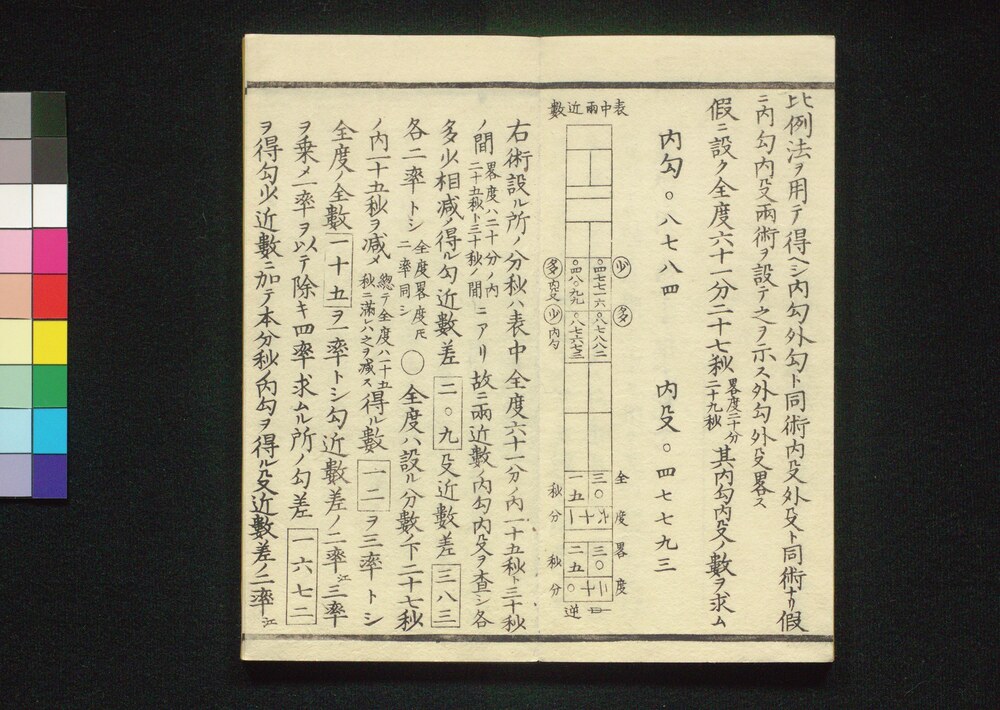 比例法ヲ用テ得ヘシ内勾外勾ト同術内殳外殳ト同術ナリ假
ニ内勾内殳兩術ヲ設テ之ヲ示ス外勾外殳畧ス
假ニ設ク全度六十一分二十七秋畧度二十分二十九秋其内勾内殳ノ數ヲ求ム
内勾。八七八四 内殳。四七七九三
表中兩近數
少 多
。四七七一六 。八七八八二
。四八〇九九 。八七六七三
多内殳 少内勾
全度 畧度
三〇 三〇
一五 二五
秋分 秋分
逆
右術設ル所ノ分秋ハ表中全度六十一分ノ内一十五秋ト三十秋
ノ間畧度ハ二十分ノ内二十五秋ト三十秋ノ間ニアリ故ニ兩近數ノ内勾内殳ヲ査シ各
多少相減ノ得ル勾近數差二〇九殳近數差三八三
各二率トシ全度畧度尺二率同シ〇全度ハ設ル分數ノ下二十七秋
ノ内一十五秋ヲ減メ總テ全度ハ十五秋ニ滿レハ之ヲ減ス得ル數一二ヲ三率トシ
全度ノ全數一十五ヲ一率トシ勾近數差ノ二率江三率
ヲ乗メ一率ヲ以テ除キ四率求ムル所ノ勾差一六七二
ヲ得勾少近數ニ加テ本分秋ノ内勾ヲ得ル殳近數差ノ二率江